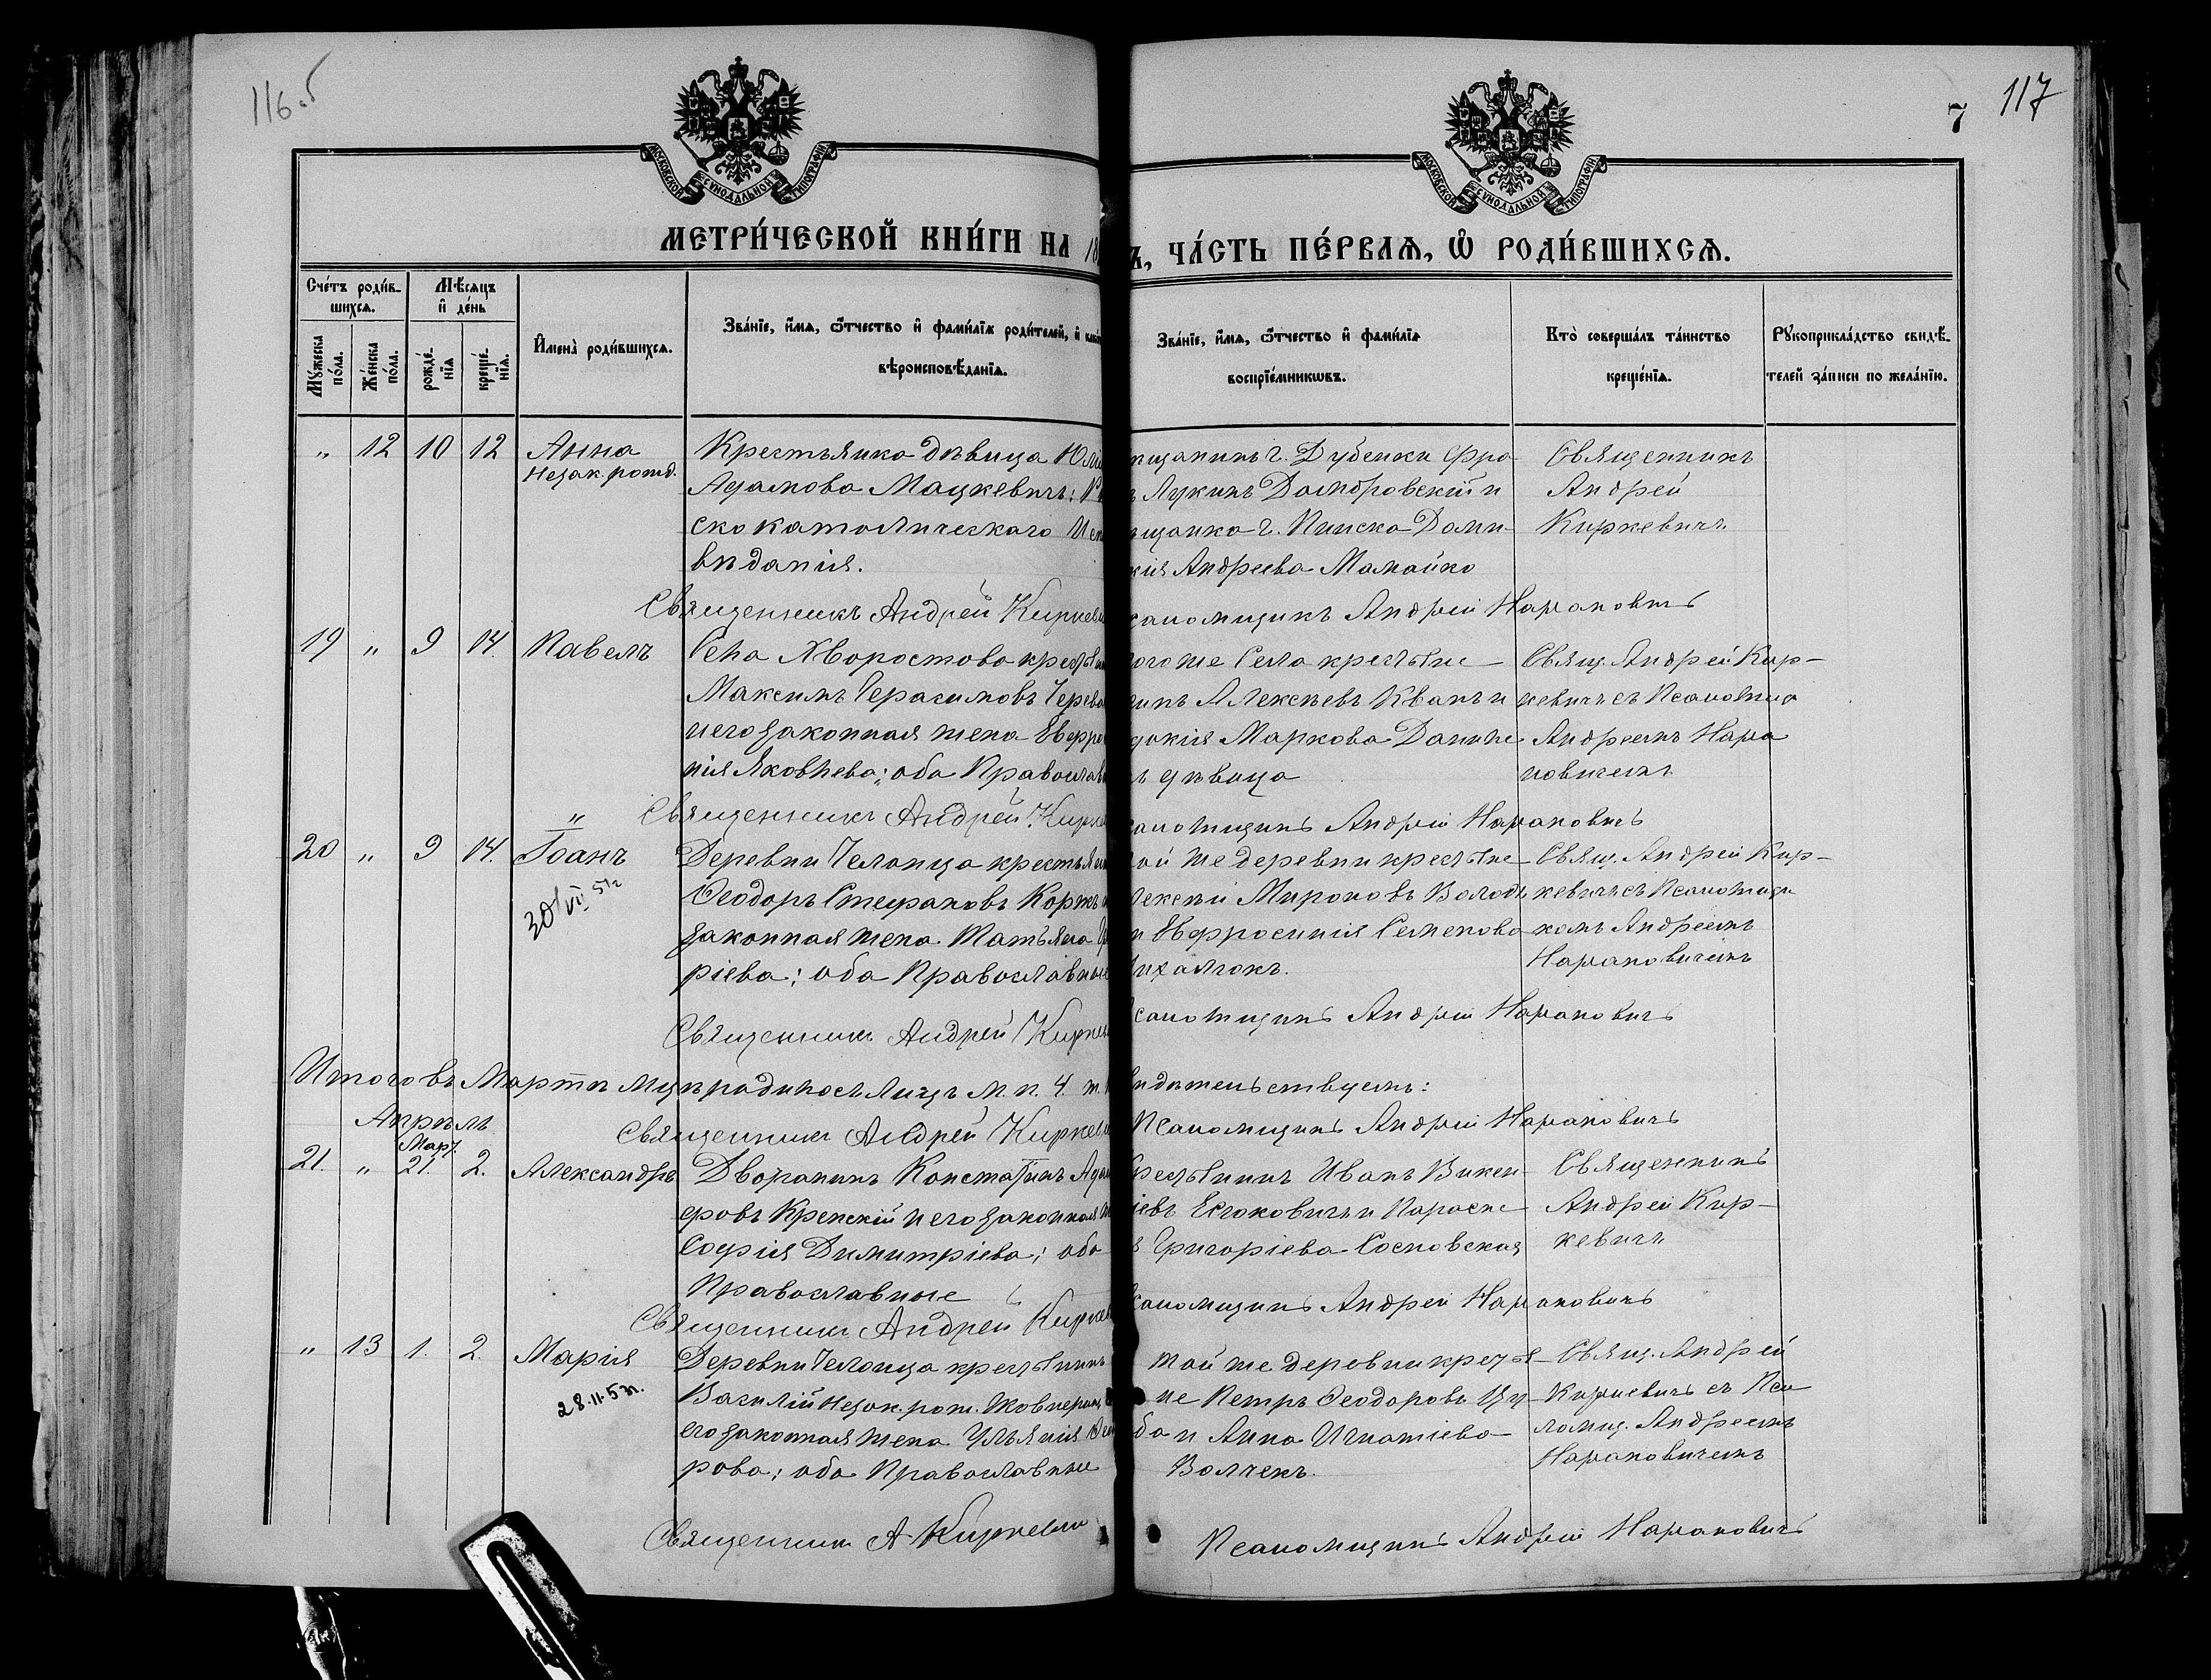 116 об
117
7
МОСКОВСКОЙ СѴНОДАЛЬНОЙ ТИПОГРАФІИ
МОСКОВСКОЙ СѴНОДАЛЬНОЙ ТИПОГРАФІИ
МЕТРИ́ЧЕСКОЙ КНИ́ГИ НА 18
Ъ, ЧА́СТЬ ПЕ́РВАѦ, Ѿ РОДИ́ВШИХСѦ.
Сче́тъ роди́в-
шихсѧ.
Мѣ́сѧцъ
и҆ де́нь
Мꙋ́жеска
по́ла.
Же́нска
по́ла.
рожде́-
нїѧ
креще́-
нїѧ.
И҆мена̀ роди́вшихсѧ.
Зва́нїе, и҆́мѧ, ѻ҆́тчество и҆ фами́лїѧ роди́телей, и҆
вѣроисповѣ́данїѧ.
Зва́нїе, и҆́мѧ, ѻ҆́тчество и҆ фами́лїѧ
воспрїе́мникѡвъ.
Кто̀ соверша́лъ та́инство
креще́нїѧ.
Рꙋкоприкла́дство свидѣ́-
телей за́писи по жела́нїю.
" 12 10 12 Анна
Незак. рожд.
Крестьянка дѣвица Юли
Адамова Мацкевичъ; Р
ско католическаго Исп
вѣданія.
щанинъ г. Дубенки Фра
ъ Лукинъ Домбровскій и
щанка г. Пинска Доми-
кія Андреева Мамайко
Священникъ
Андрей
Киркевичъ
Священникъ Андрей Киркеви
саломщикъ Андрей Нарановичъ
19 " 9 14. Павелъ
Села Хворостова кресть
Максимъ Герасимовъ Черев
и его законная жена Евфро
нія Яковлева; оба Православ
ого же села крестьяне
Алексѣевъ Квачъ и
докія Маркова Даниле
ъ дѣвица
Свящ. Андрей Кир-
кевичъ съ Псаломщи
Андреемъ Нара
новичемъ
Священникъ Андрей Кирке
саломщикъ Андрей Нарановичъ
20 " 9 14. Іоанъ
Деревни Челонца крестьян
Ѳеодоръ Стефановъ Коржъ
законная жена Татьяна
ріева; оба Православные
ой же деревни крестьяне
лексѣй Мироновъ Володь
и Евфросинія Семенова
ихалчокъ.
Свящ. Андрей Кир-
кевичъ съ Псаломщи
комъ Андреемъ
Нарановичемъ
Священникъ Андрей Кирке
саломщикъ Андрей Нарановичъ
Итого въ Мартѣ мцѣ родилось лицъ м. п. 4 ж.
идѣтельствуемъ:
Апрѣль
Священникъ Андрей Киркеви
Псаломщикъ Андрей Нарановичъ
Март.
21. " 21. 2. Александръ
Дворянинъ Констатинъ Адам
еровъ Кренскій и его законная
Софія Димитріева; оба
Православные
рестьянинъ Иванъ Викен-
іевъ и Параске-
я Григоріева Сосновская
Священникъ
Андрей Кир-
кевичъ
Священникъ Андрей Киркев
саломщикъ Андрей Нарановичъ
" 13 1. 2. Марія
28.11.53г.
Деревни Челонца крестьянинъ
Василій незак. рож. Жовнеринъ
его законная жена Ульянія Ѳео
рова; оба Православные
той же деревни крестья-
не Петръ Ѳеодоровъ Цу
ба и Анна Игнатіева
Волчекъ.
Свящ. Андрей
Киркевичъ съ Пса
ломщ. Андреемъ
Нарановичемъ
Священникъ А. Киркевич
Псаломщикъ Андрей Нарановичъ